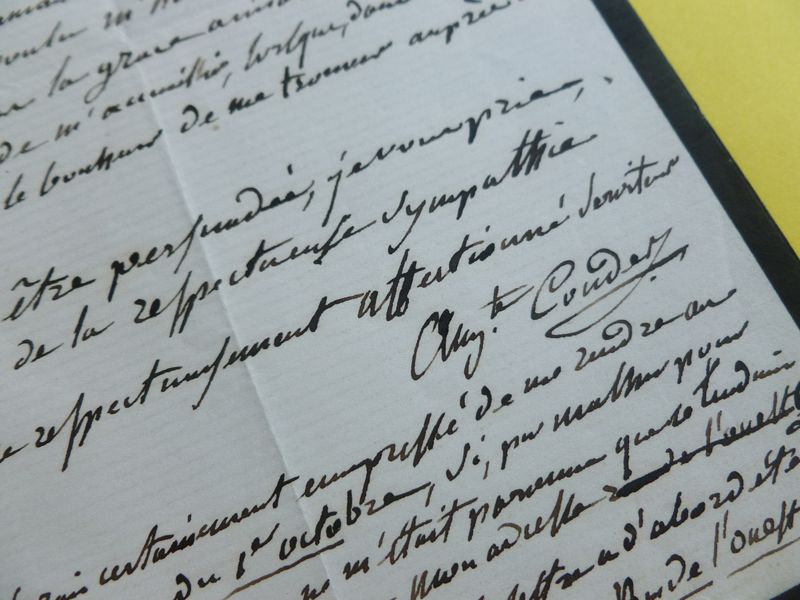 voulu m'
la grace
de m'accueillir, lorsque, dans
le bonheur de me trouver auprès
être persuadée, je vous prie,
de la respectueuse sympathie
respectueusement affectionné serviteur
Aug.te Couder
certainement empressé de me rendre au
du 1er octobre, si, par malheur pour
m'était parvenue que le lendemain
mon adresse rue de l'ouest
lettre a d'abord été à
Rue de l'ouest